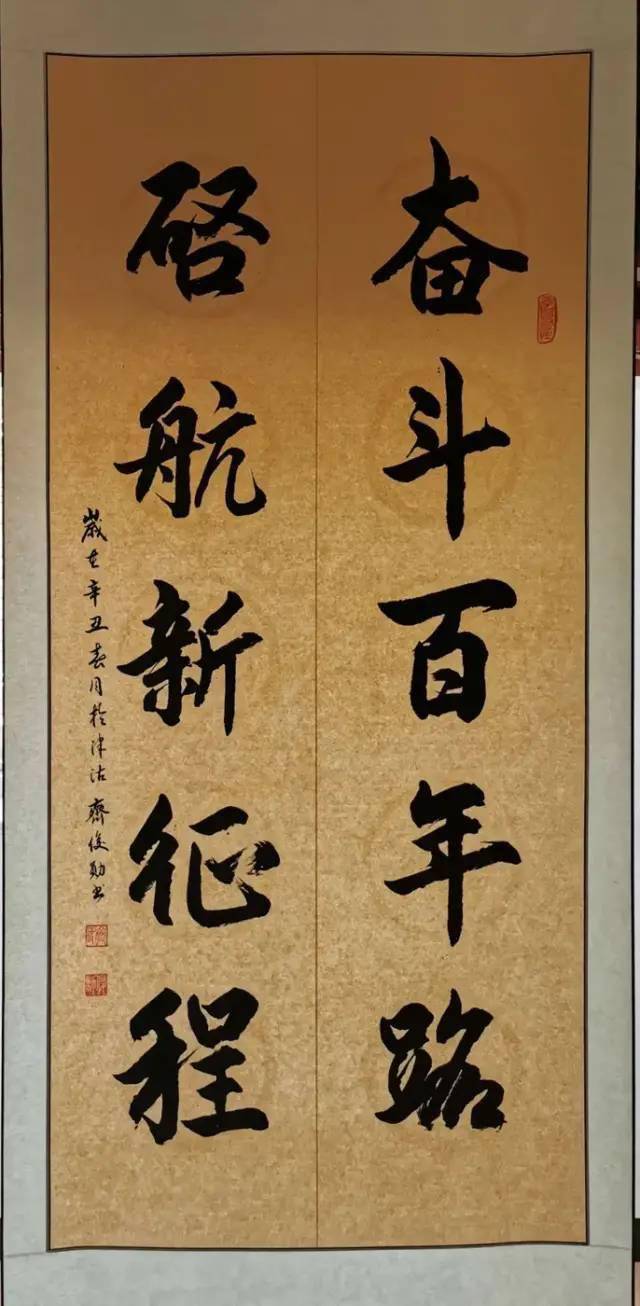 奋斗百年路
启航新征程
歲在辛丑春月於津沽齊俊勛書